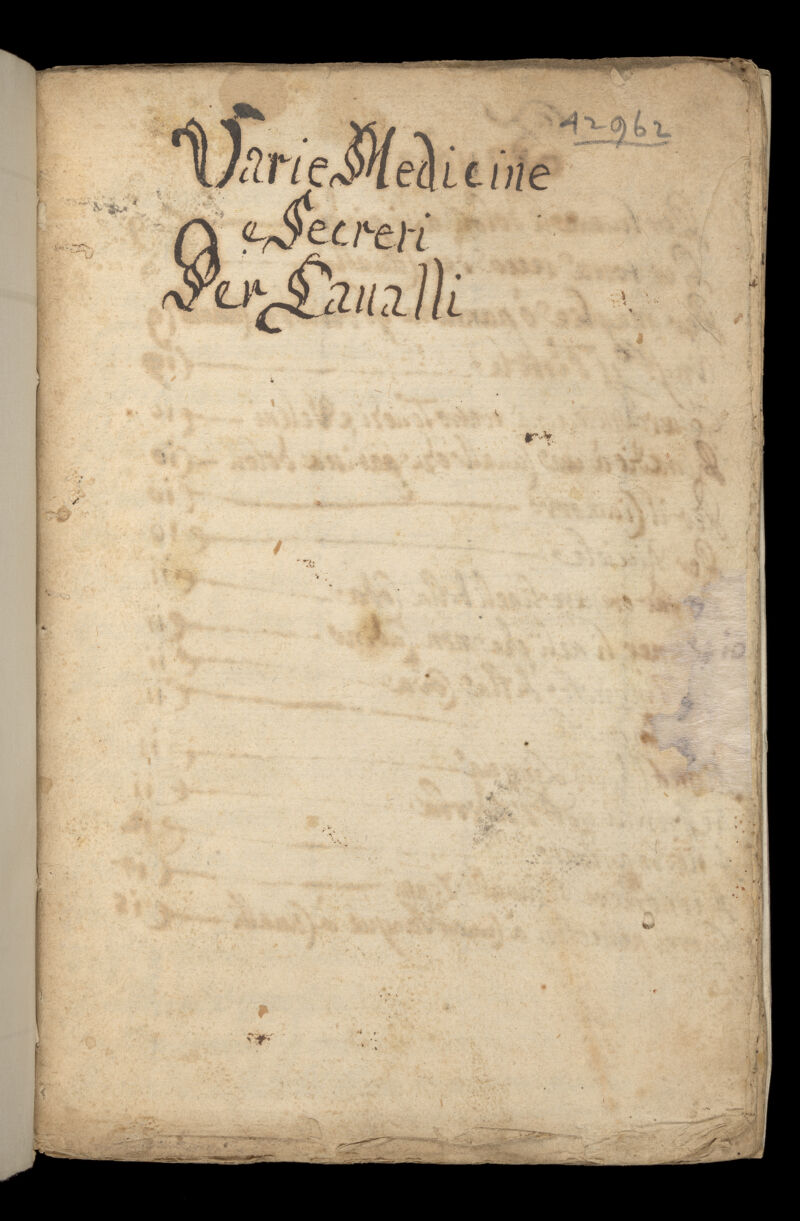 42962
Varie Medicine
e Secreti
Per Caualli